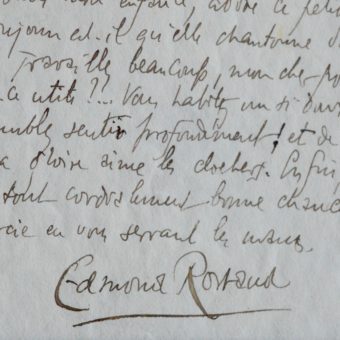 enfant, adore ce petit
qu'elle chantonne
Travaillez beaucoup, mon cher
utile ?!... Vous habitez un si
sentir profondément ! et de
gloire aime les clochers. Enfin,
cordialement bonne chance
en vous serrant les mains.
Edmond Rostand